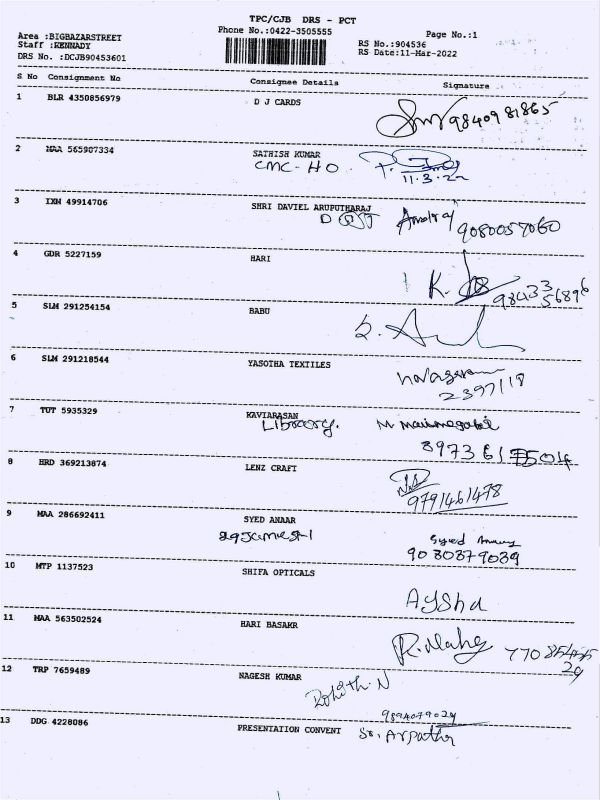 TPC/CJB DRS - PCT
Area :BIGBAZARSTREET Phone No.:0422-3505555 Page No.:1
Staff :KENNADY RS No.:904536
DRS No. :DCJB90453601 RS Date:11-Mar-2022
S No Consignment No Consignee Details Signature
1 BLR 4350856979 D J CARDS
9840981865
2 MAA 565907334 SATHISH KUMAR
CMC-HO
11.3.22
3 IXM 49914706 SHRI DAVIEL ARUPUTHARAJ
9080057060
4 GDR 5227159 HARI
K.
98433
56896
5 SLM 291254154 BABU
6 SLM 291218544 YASOTHA TEXTILES
2397118
7 TUT 5935329 KAVIARASAN
Library.
8 HRD 369213874 LENZ CRAFT
9791461478
9 MAA 286692411 SYED ANAAR
Syed
9080879039
10 MTP 1137523 SHIFA OPTICALS
AYSha
11 MAA 563502524 HARI BASAKR
12 TRP 7659489 NAGESH KUMAR
Rohith.N
9894079029
13 DDG 4228086 PRESENTATION CONVENT
Sr. Arpatha